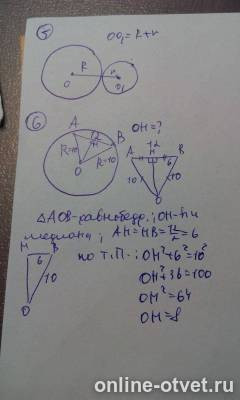 5
OO₁=R+r
R
r
O
O₁
6
OH=?
A
12
B
R=10
R=10
O
12
A
H
B
6
10
10
O
△AOB-равнобедр.; OH-h и
медиана; AH=HB=12/2=6
H
B
6
10
O
по т.П.: OH²+6²=10²
OH²+36=100
OH²=64
OH=8
online-otvet.ru